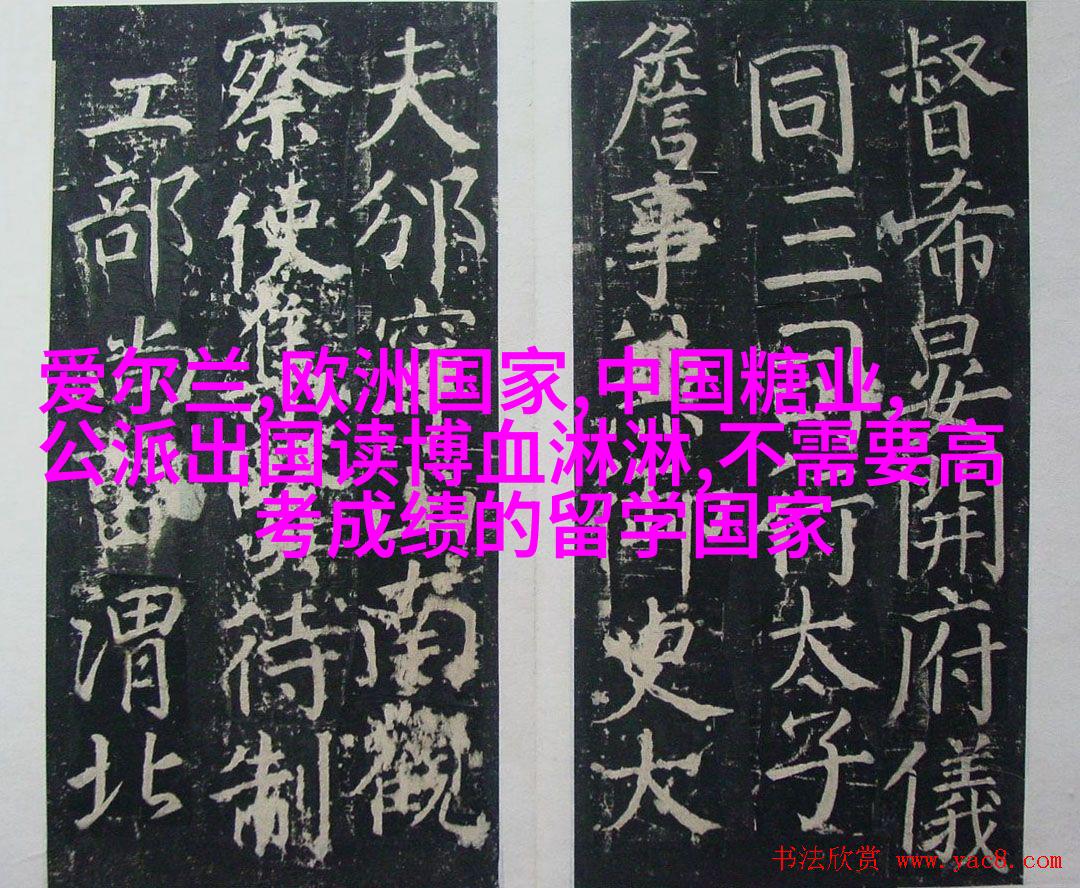 爱尔兰,欧洲国家,中国糖业,
公派出国读博血淋淋,不需要高
考成绩的留学国家
督希晏開府儀
同三司行太子
詹事 史大
夫邠寧 南觀
察使 待制
工部尚 渭北
书法欣赏 www.yac8.com